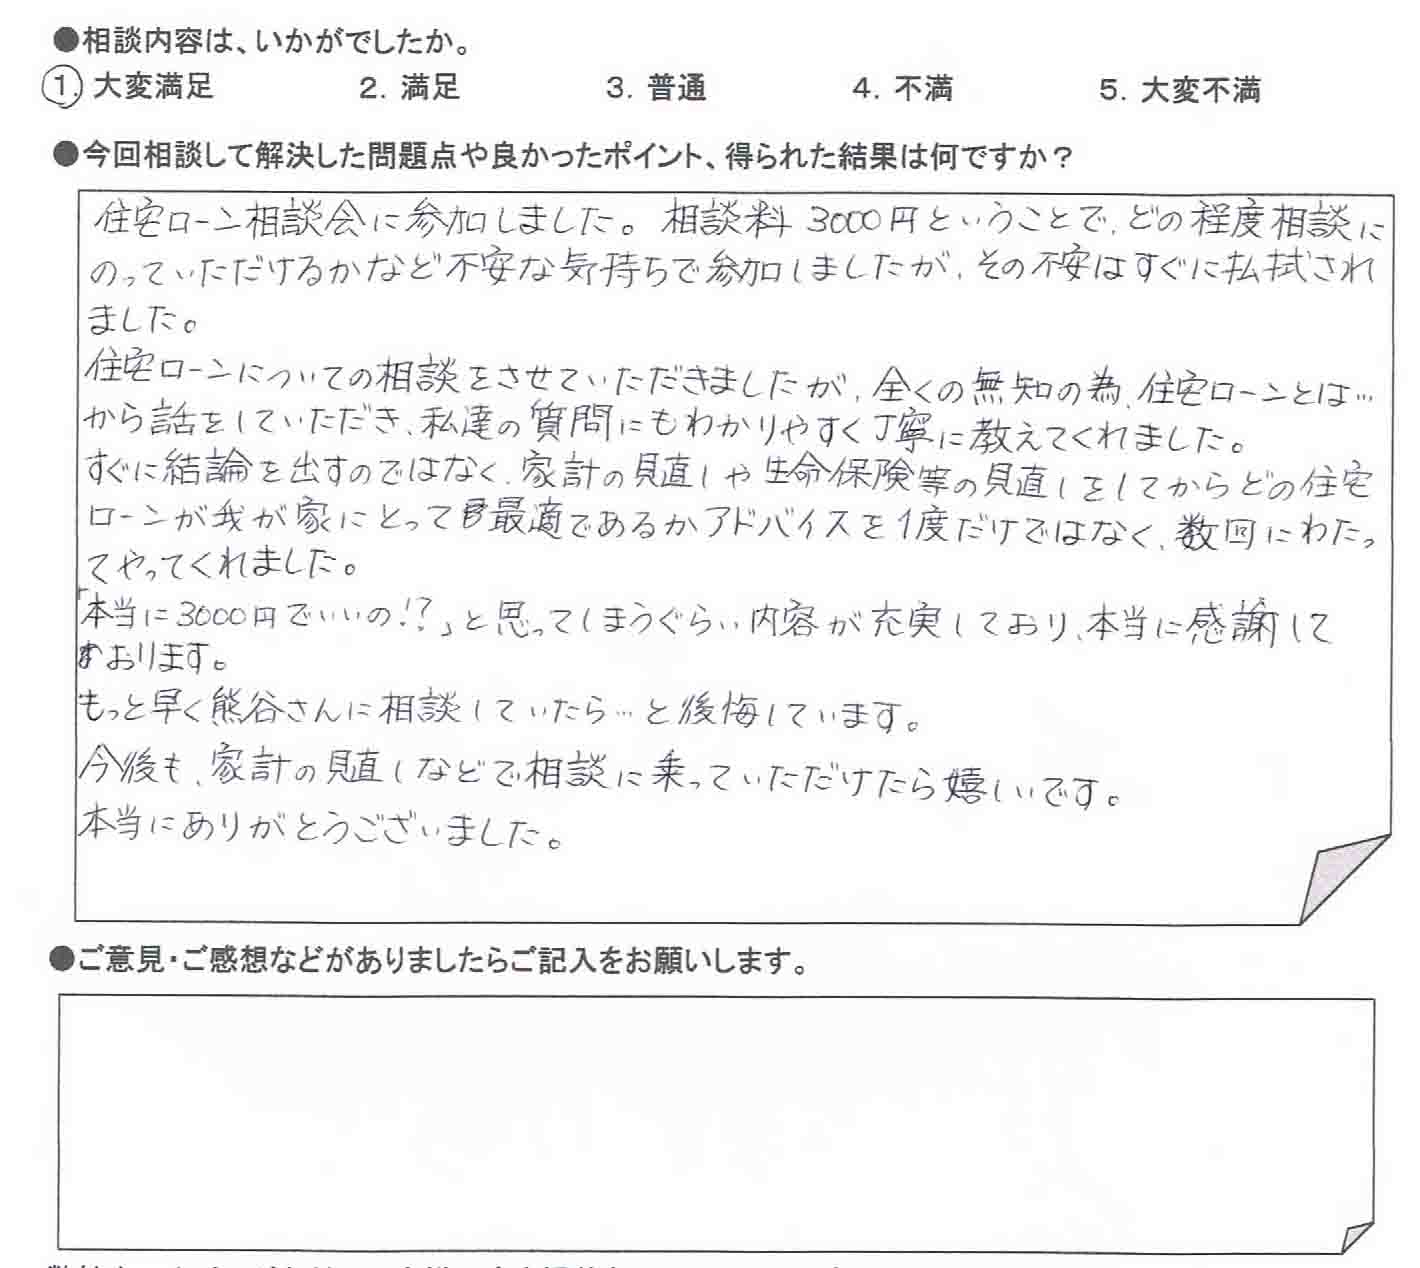 ●相談内容は、いかがでしたか。
1. 大変満足　2. 満足　3. 普通　4. 不満　5. 大変不満
●今回相談して解決した問題点や良かったポイント、得られた結果は何ですか？
住宅ローン相談会に参加しました。相談料3000円ということで、どの程度相談に
のっていただけるかなど不安な気持ちで参加しましたが、その不安はすぐに払拭され
ました。
住宅ローンについての相談をさせていただきましたが、全くの無知の為、住宅ローンとは…
から話をしていただき、私達の質問にもわかりやすく丁寧に教えてくれました。
すぐに結論を出すのではなく、家計の見直しや生命保険等の見直しをしてからどの住宅
ローンが我が家にとって最適であるかアドバイスを1度だけではなく、数回にわたっ
てやってくれました。
「本当に3000円でいいの!?」と思ってしまうぐらい内容が充実しており、本当に感謝して
おります。
もっと早く熊谷さんに相談していたら…と後悔しています。
今後も、家計の見直しなどで相談に乗っていただけたら嬉しいです。
本当にありがとうございました。
●ご意見・ご感想などがありましたらご記入をお願いします。